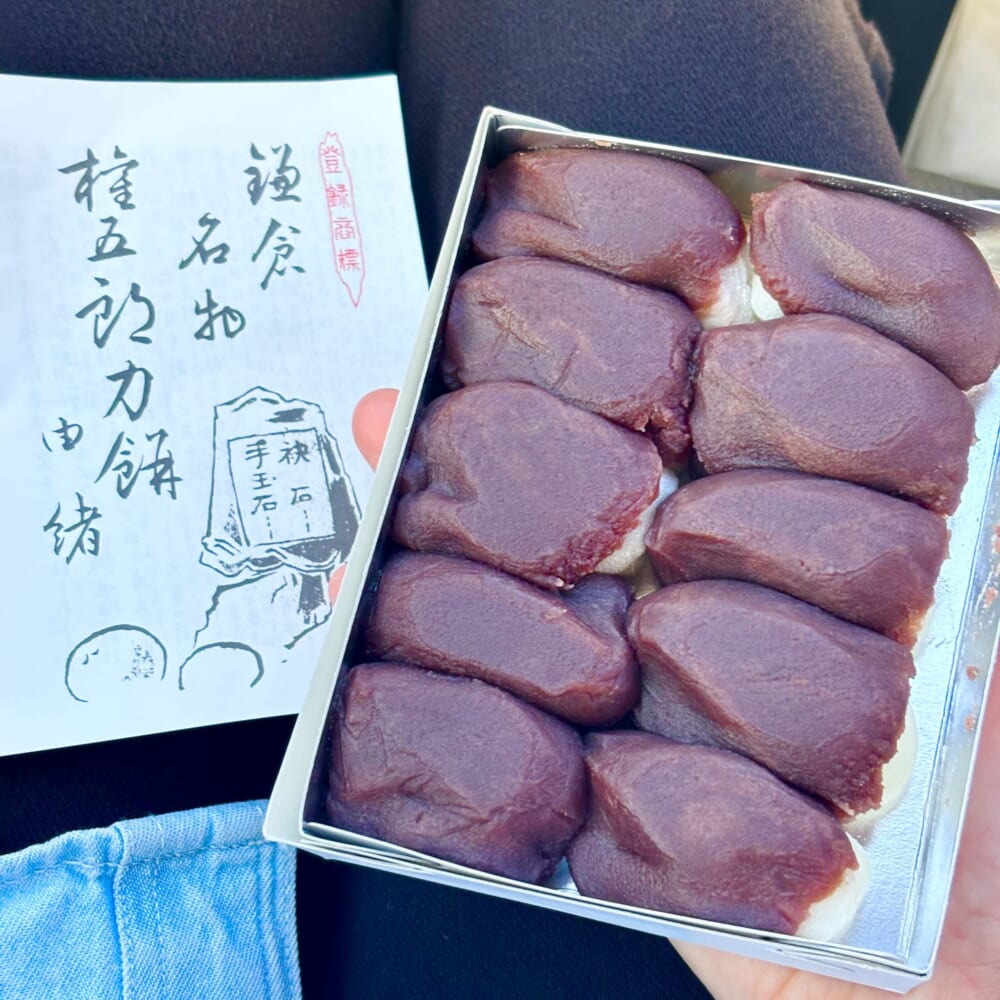 登録商標
鎌倉
名物
権五郎力餅
由緒
袂石
手玉石